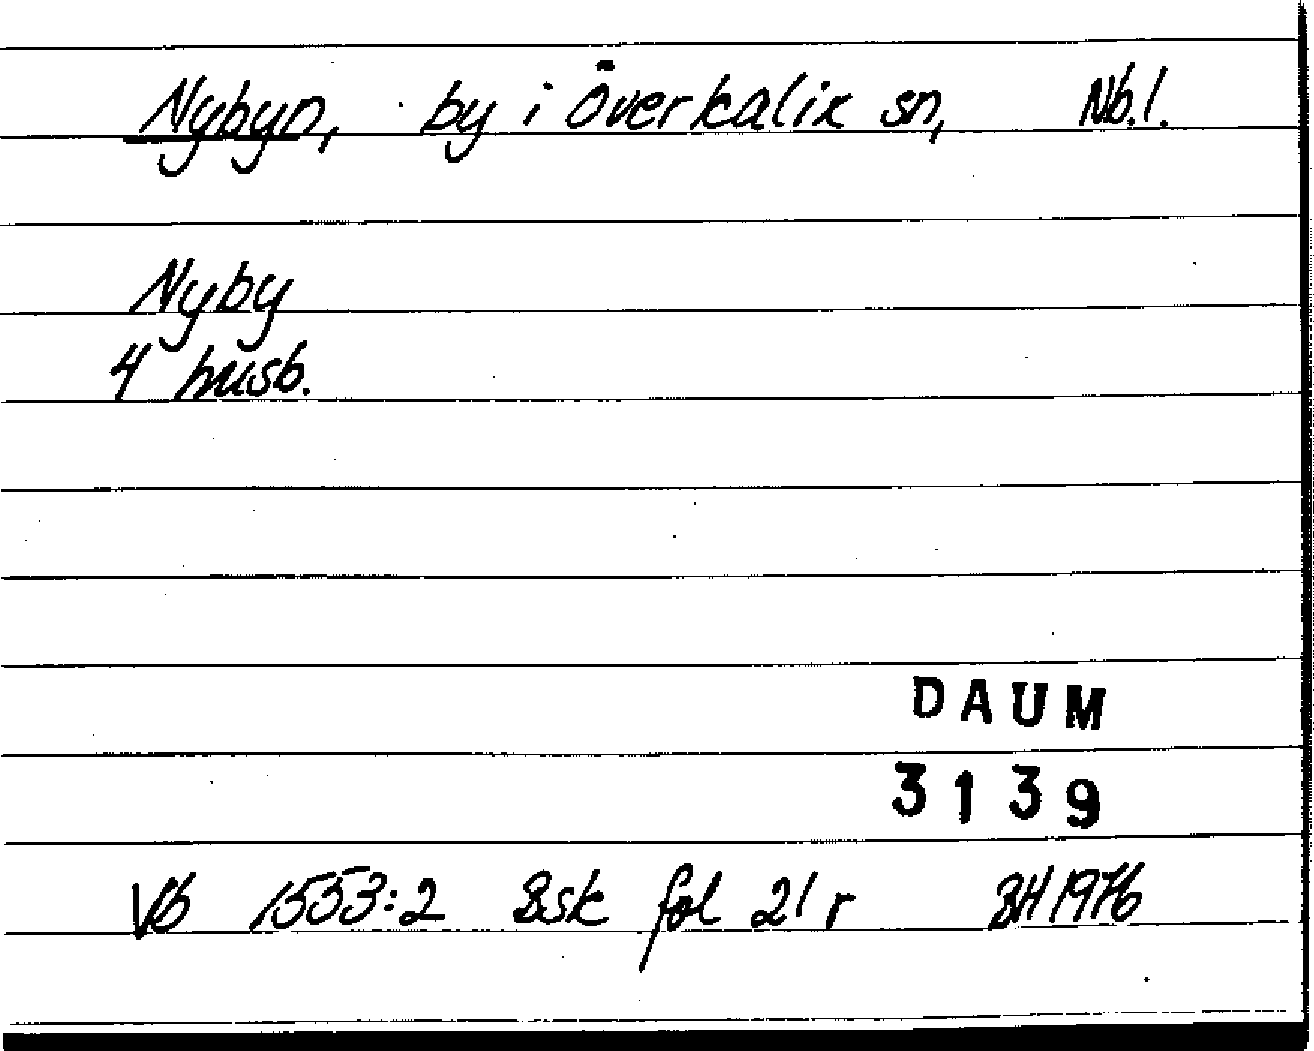 Nybyn, by i Överkalix sn, Nb.l.
Nyby
4 husb.
DAUM
3139
Vb 1553:2 Bsk fol 21 r BH 1976